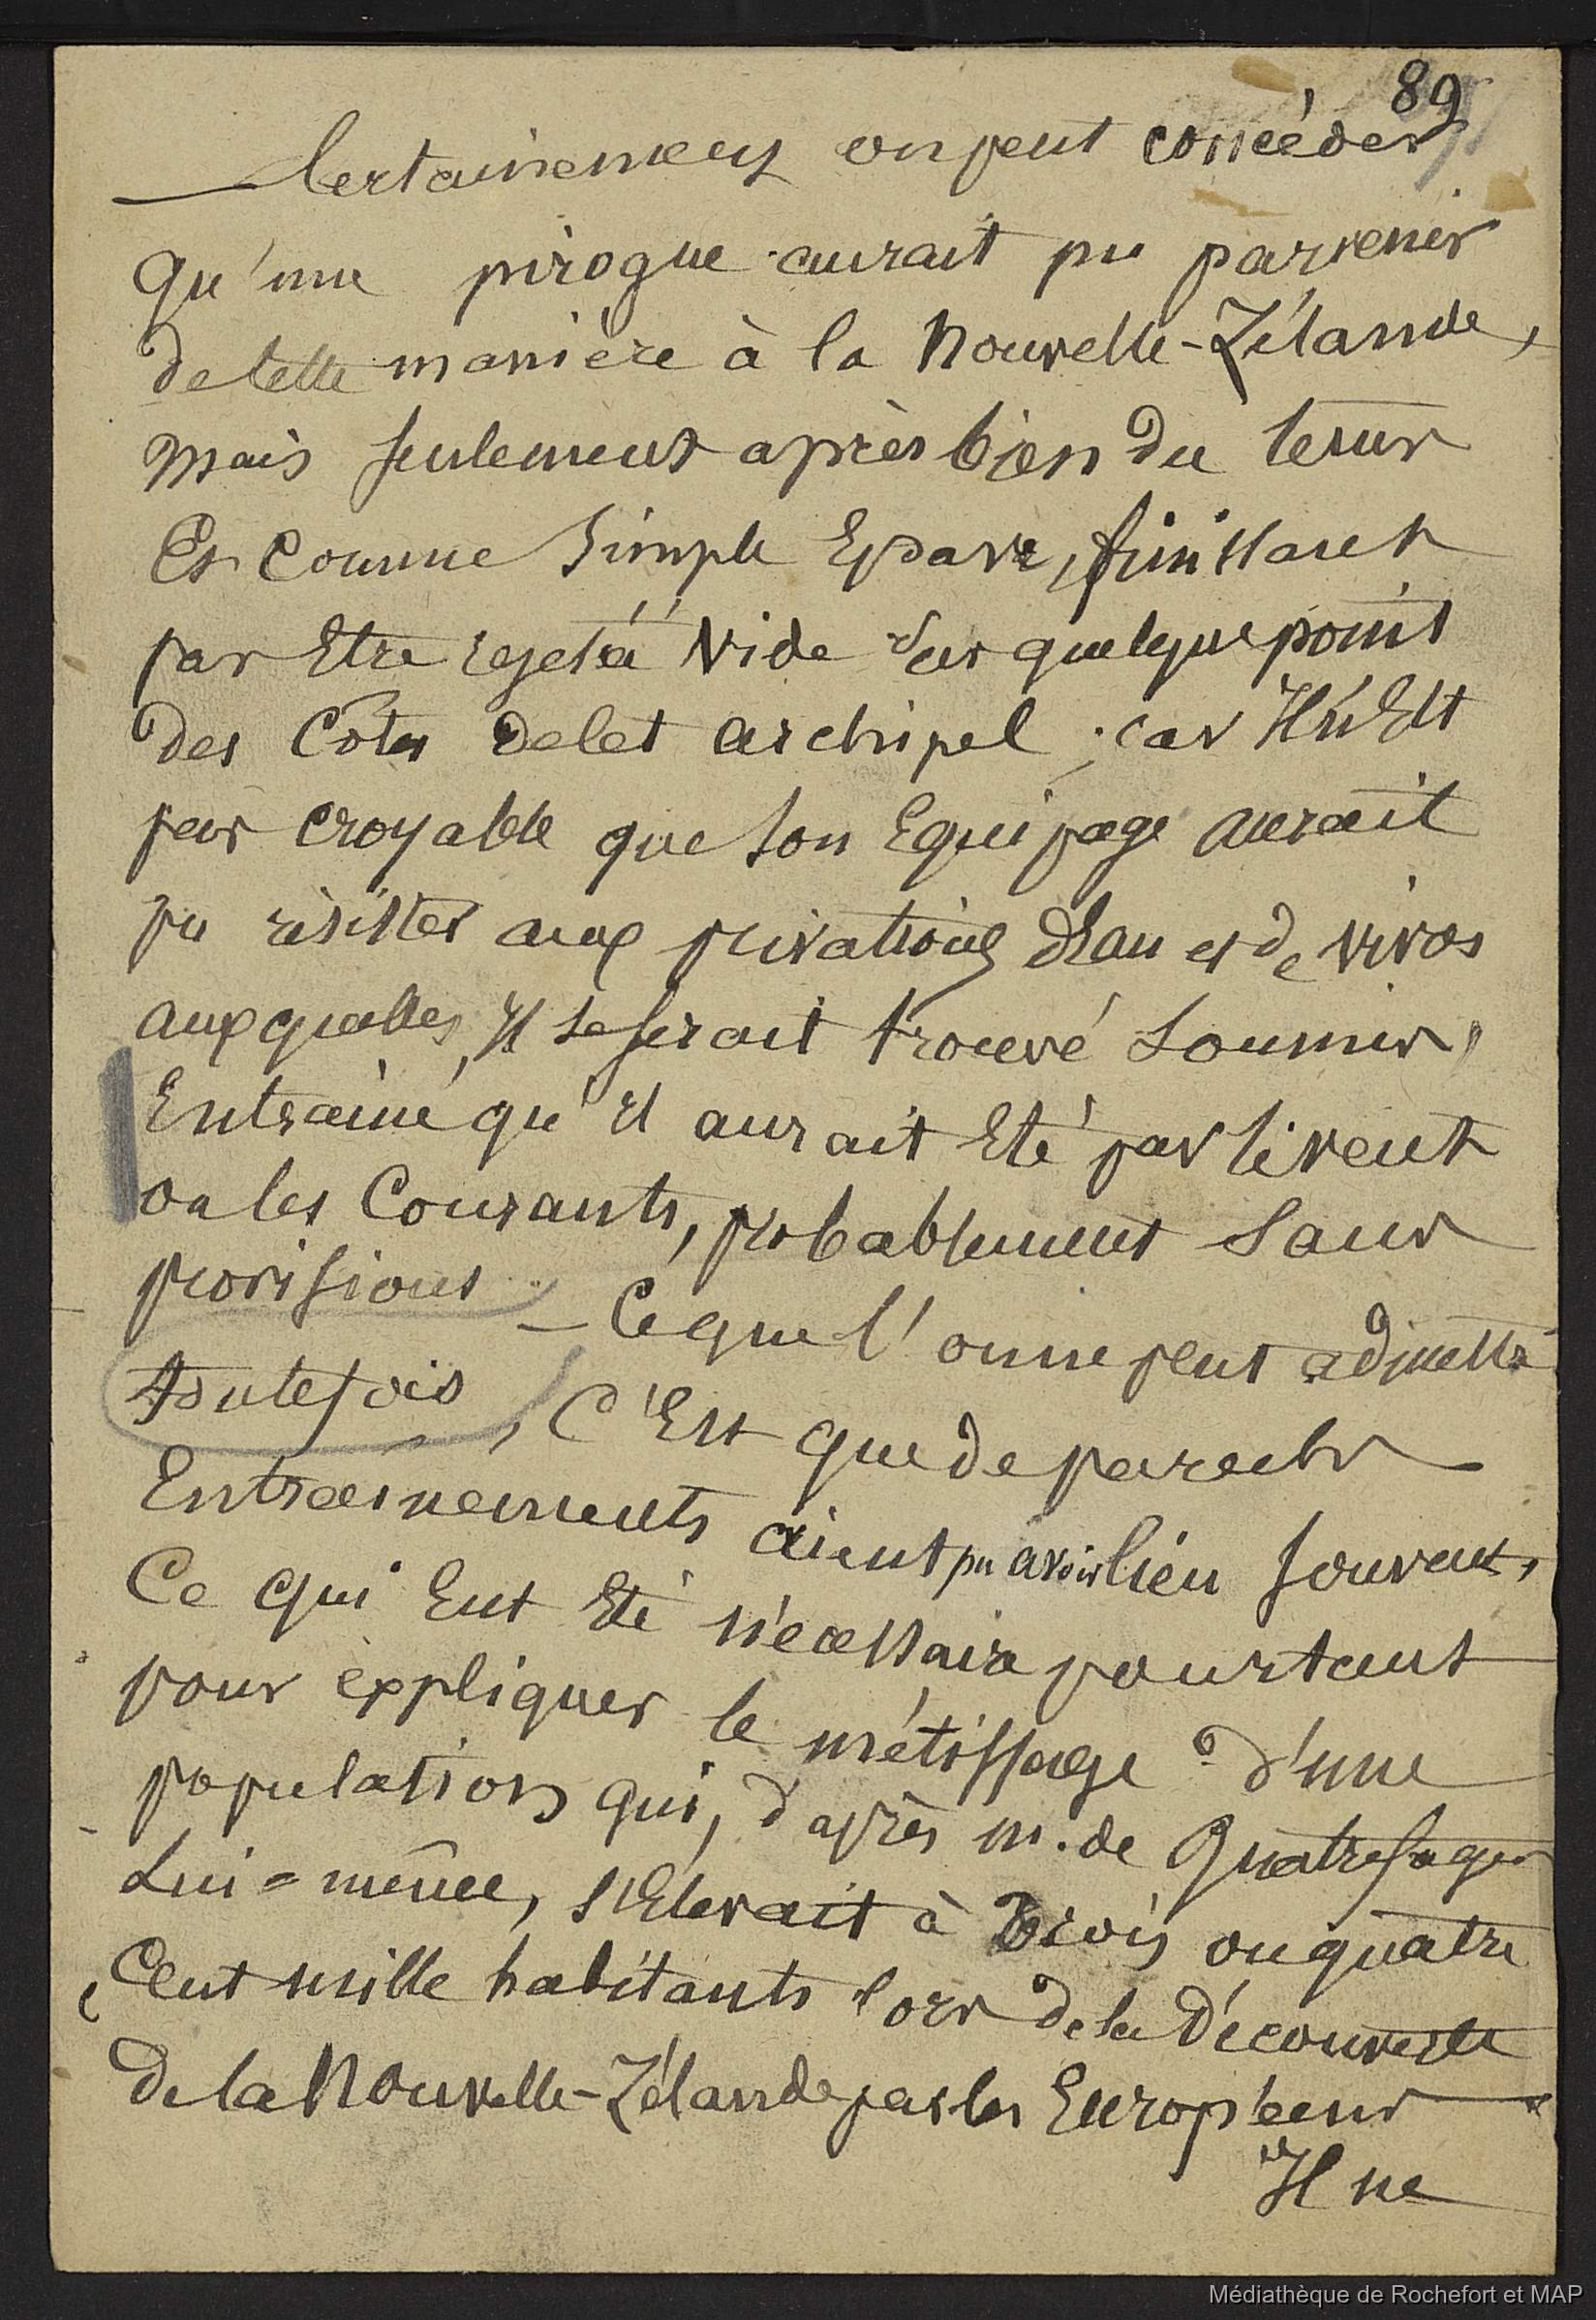 89
— Certainement on peut concéder
qu'une pirogue aurait pu parvenir
de telle manière à la Nouvelle-Zélande,
mais seulement après bien du temps
Et comme simple Epave, finissant
par Etre rejetée à vide sur quelque point
des Côtes de cet archipel ; car Il n'Est
pas croyable que son Equipage aurait
pu résister aux privations d'Eau et de vivres
auxquelles Il se serait trouvé soumis,
Entrainé qu'Il aurait Eté par le vent
ou les Courants, probablement sans
provisions — Ce que l'on ne peut admettre
toutefois, C'Est que de pareils
Entrainements aient pu avoir lieu souvent,
Ce qui Eut Eté nécessaire pourtant
pour expliquer le métissage d'une
population qui, d'après M. de Quatrefages
Lui-même, s'Elevait à trois ou quatre
Cent mille habitants lors de la Découverte
de la Nouvelle-Zélande par les Européens
Il ne
Médiathèque de Rochefort et MAP